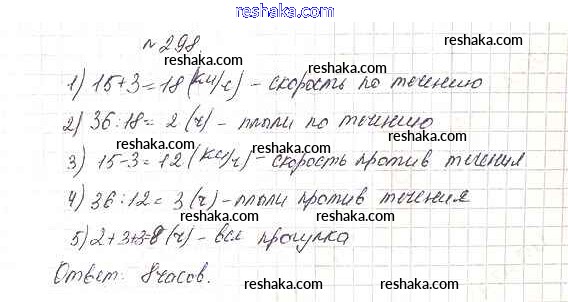 www.reshaka.com
reshaka.com
№298.
reshaka.com
reshaka.com
1) 15+3=18 (км/ч) - скорость по течению
reshaka.com
reshaka.com
2) 36:18= 2 (ч) - плыли по течению
reshaka.com
3) 15-3=12 (км/ч) - скорость против течения
reshaka.com
reshaka.com
4) 36:12= 3 (ч) - плыли против течения
reshaka.com
5) 2+3+3=8 (ч) - вся прогулка
reshaka.com
reshaka.com
Ответ: 8 часов.
reshaka.com
www.reshaka.com